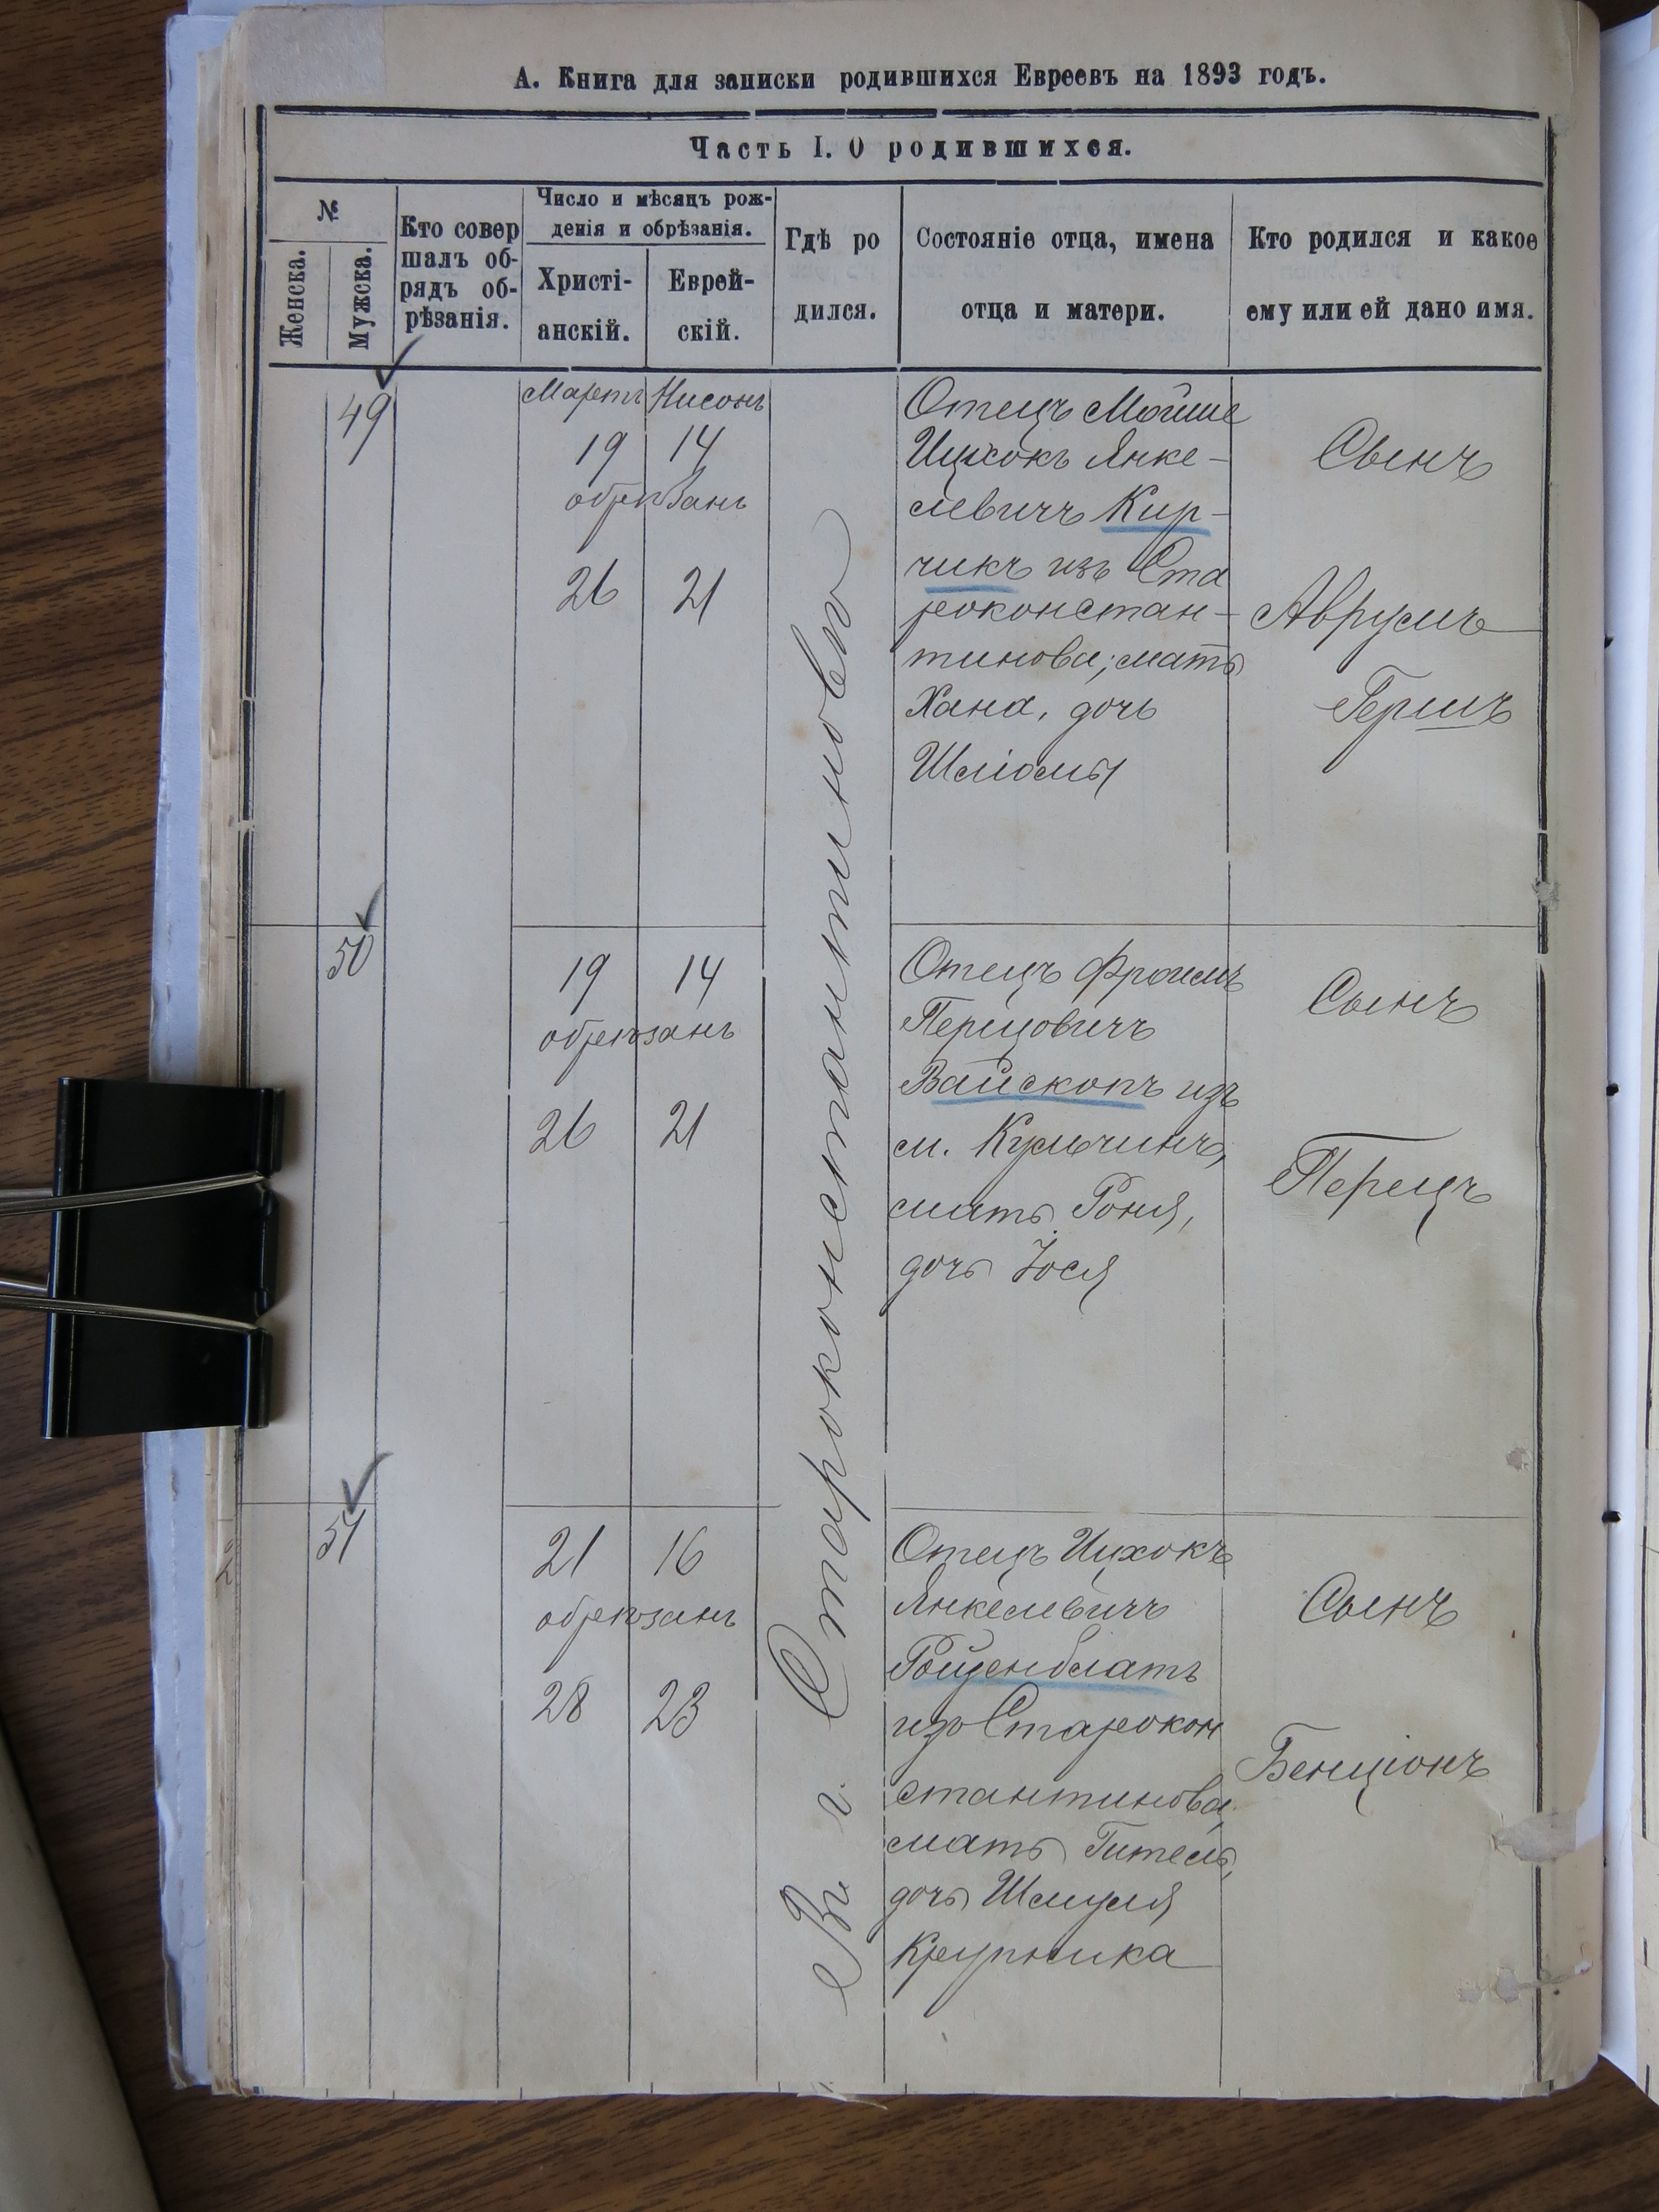 А. Книга для записки родившихся Евреевъ на 1893 годъ.
Часть I. О родившихся.
№
Женска.
Мужска.
Кто совер
шалъ об-
рядъ об-
рѣзанія.
Число и мѣсяцъ рож-
денія и обрѣзанія.
Христі-
анскій.
Еврей-
скій.
Гдѣ ро
дился.
Состояніе отца, имена
отца и матери.
Кто родился и какое
ему или ей дано имя.
49
Мартъ Нисонъ
19 14
обрѣзанъ
26 21
Въ г. Староконстантиновѣ
Отецъ Мойше
Ицхокъ Янке-
левичъ Кир-
чикъ изъ Ста
роконстан-
тинова; мать
Хана, дочь
Шліомы
Сынъ
Аврумъ
Гершъ
50
19 14
обрѣзанъ
26 21
Отецъ Фроимъ
Перцовичъ
Вайскопъ изъ
м. Кульчинъ,
мать Роня,
дочь Іося
Сынъ
Перецъ
51
21 16
обрѣзанъ
28 23
Отецъ Ицхокъ
Янкелевичъ
Ройзенблатъ
изъ Старокон
стантинова,
мать Гитель,
дочь Шмуля
Крупника
Сынъ
Бенціонъ